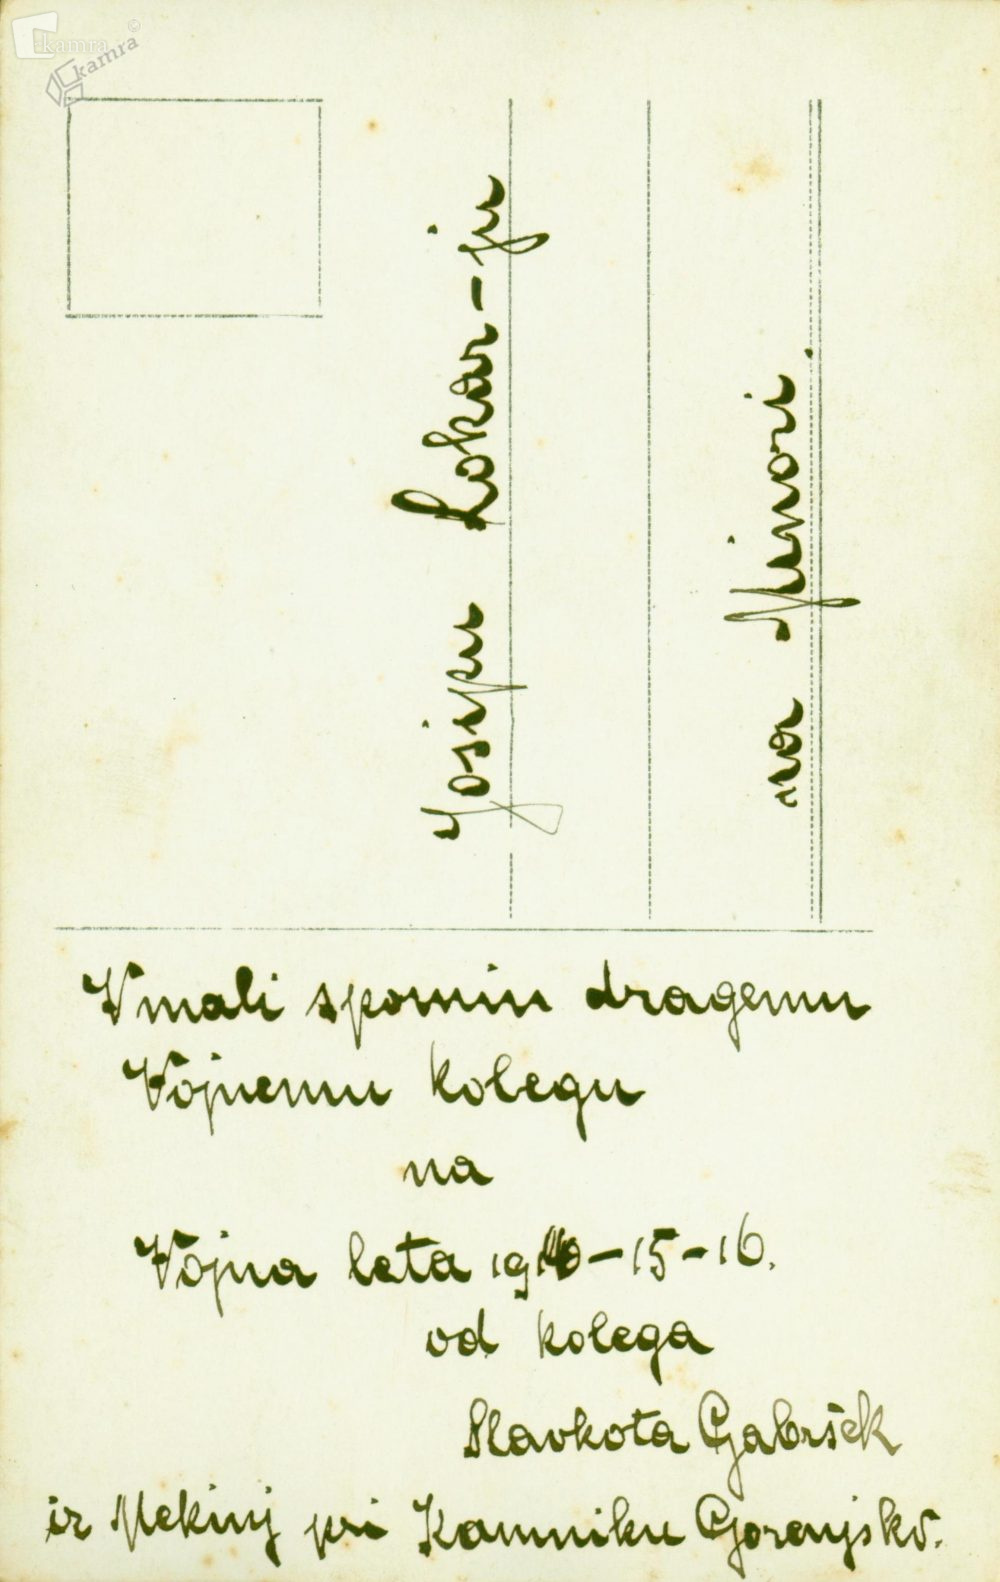 kamra
kamra ©
Josipu Lokar-ju
na
V mali spomin dragemu
Vojnemu kolegu
na
Vojna leta 1914-15-16.
od kolega
Slavkota Gabršek
iz Mekinj pri Kamniku Gorenjsko.